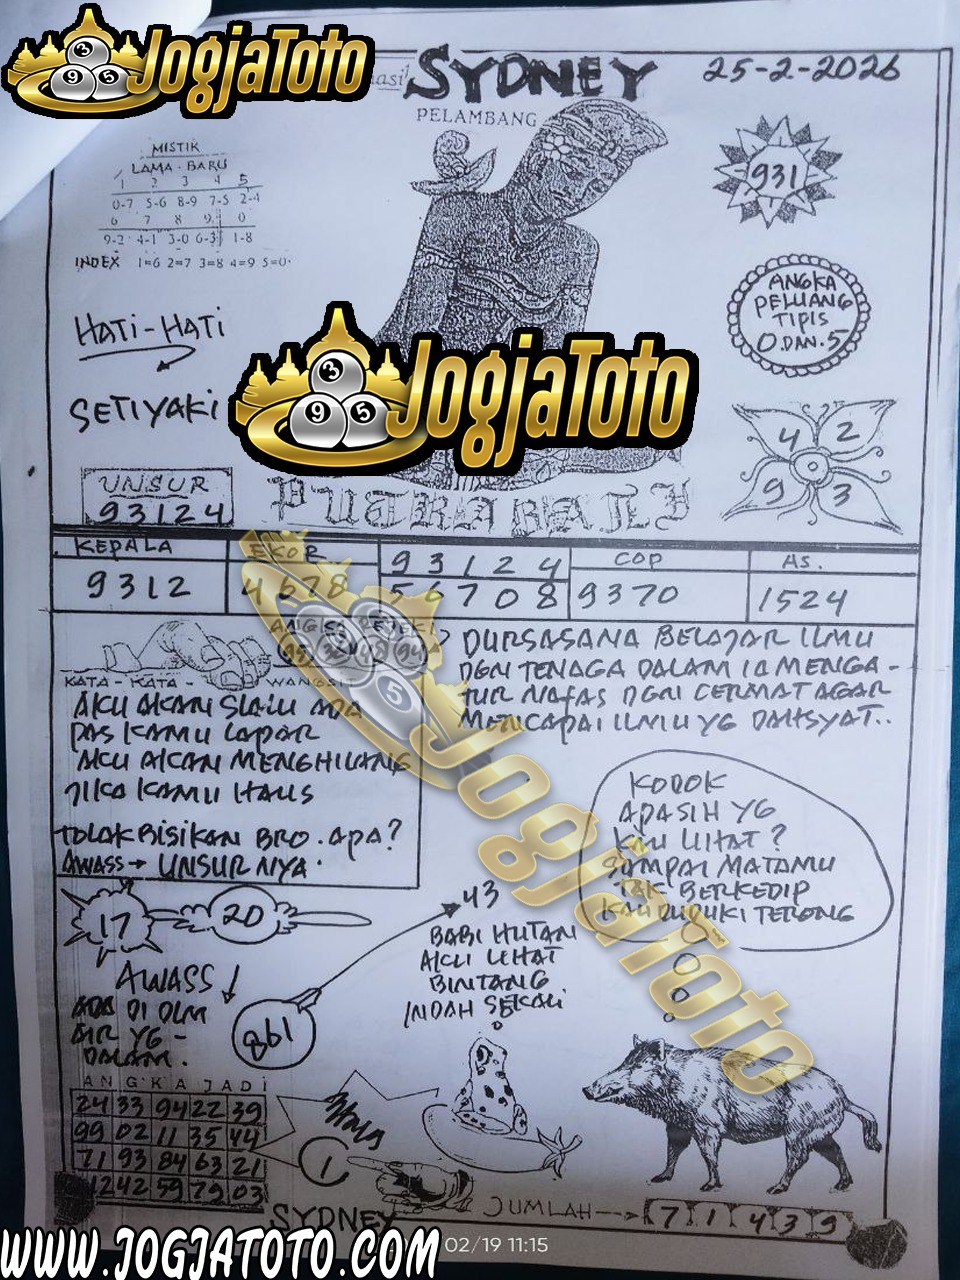 JogjaToto
SYDNEY
25-2-2026
PELAMBANG
MISTIK
LAMA - BARU
1 2 3 4 5
0-7 5-6 8-9 7-5 2-4
6 7 8 9 0
9-2 4-1 3-0 6-3 1-8
INDEX 1=6 2=7 3=8 4=9 5=0
931
ANGKA
PELUANG
TIPIS
0.DAN.5
HATI-HATI
SETIYAKI
3
9 5
JogjaToto
4 2
9 3
UNSUR
93124
PUTRA BALI
KEPALA
9312
EKOR
4678
93124
56708
COP
9370
AS.
1524
KATA - KATA - WANGSIT
AKU AKAN SLALU ADA
PAS KAMU LAPAR
AKU AKAN MENGHILANG
JIKA KAMU HAUS
TOLAK BISIKAN BRO. APA?
AWASS → UNSURNYA.
DURSASANA BELAJAR ILMU
DGN TENAGA DALAM IA MENGA-
TUR NAFAS DGN CERMAT AGAR
MENCAPAI ILMU YG DAHSYAT..
KODOK
APASIH YG
KAU LIHAT?
SAMPAI MATAMU
TAK BERKEDIP
KAU DUDUKI TERONG
JogjaToto
17
20
43
BABI HUTAN
AKU LIHAT
BINTANG
INDAH SEKALI
AWASS
ADA DI DLM
AIR YG -
DALAM.
861
ANGKA JADI
24 33 94 22 39
99 02 11 35 44
71 93 84 63 21
12 42 59 79 03
1
SYDNEY
JUMLAH → 7 1 4 3 9
WWW.JOGJATOTO.COM
02/19 11:15